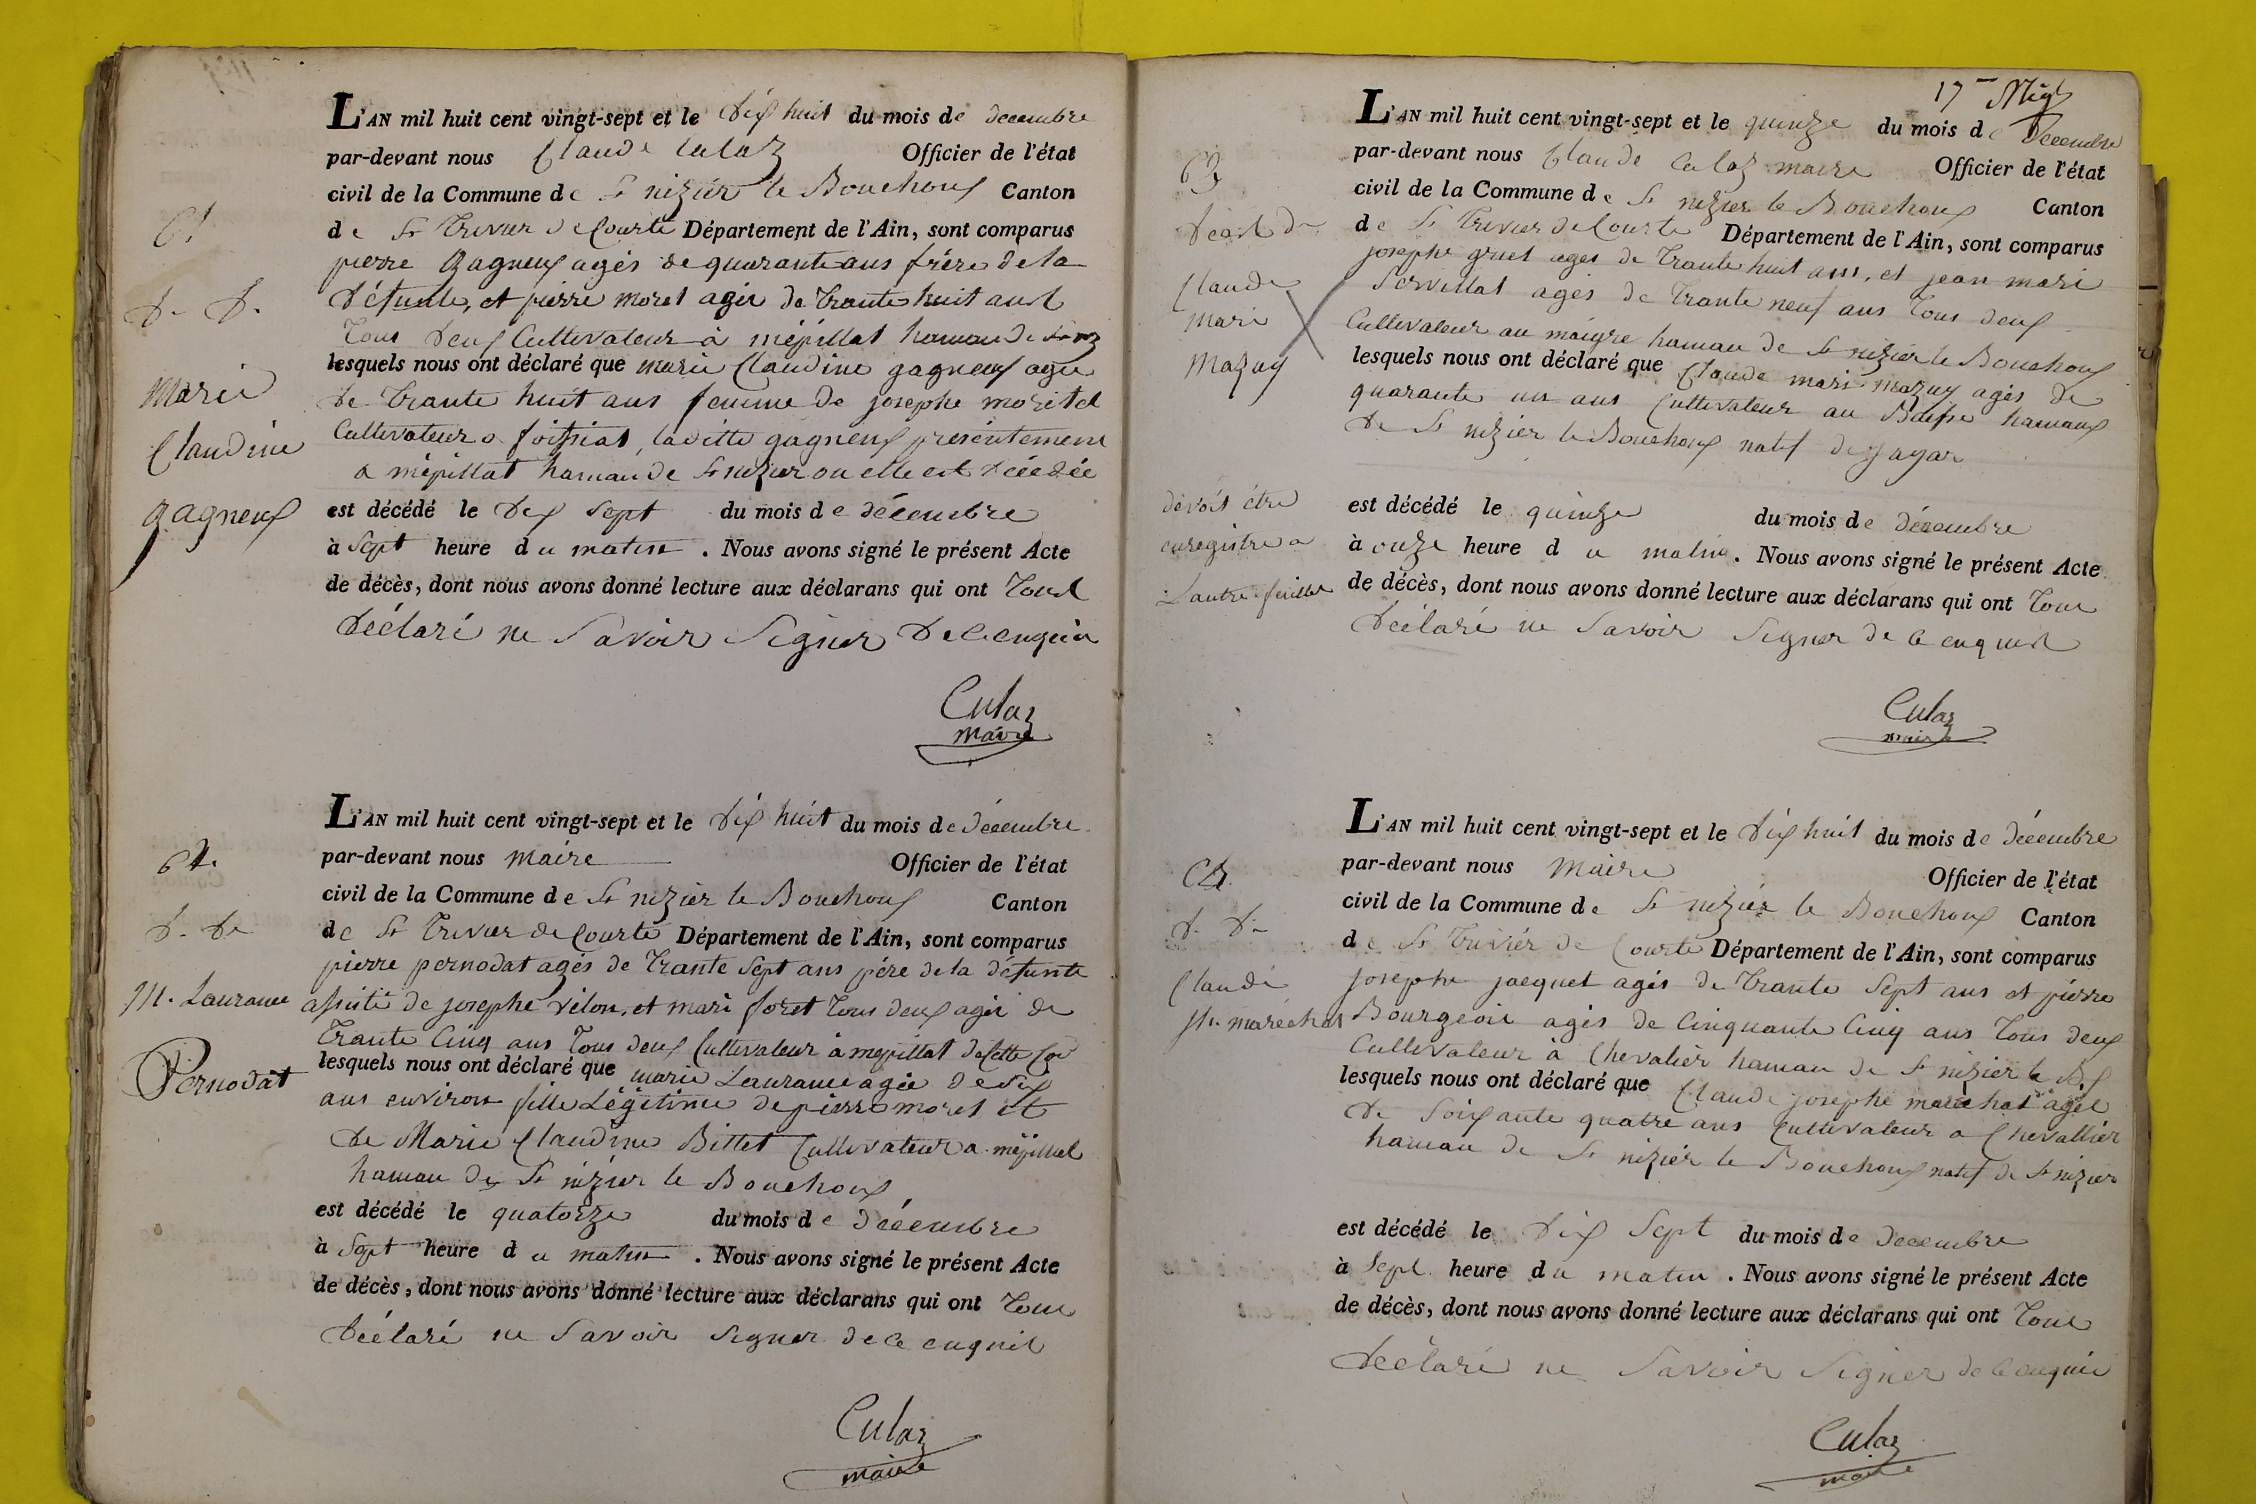 61
d. d.
Marie
Claudine
gagneux
L'AN mil huit cent vingt-sept et le dix huit du mois de decembre
par-devant nous Claude Culaz Officier de l'état
civil de la Commune de St nizier le Bouchoux Canton
de St Trivier de Courte Département de l'Ain, sont comparus
pierre gagneux agés de quarante ans frère de la
défunte, et pierre morel agée de trante huit ans
tous deux Cultivateur à mépillat hamau de St nz
lesquels nous ont déclaré que marie Claudine gagneux agée
de trante huit ans femme de josephe moritel
Cultivateur a foissiat, laditte gagneux présentement
a mépillat hamau de St nizier ou elle est décédée
est décédé le dix sept du mois de décembre
à sept heure du matin. Nous avons signé le présent Acte
de décès, dont nous avons donné lecture aux déclarans qui ont tous
déclaré ne savoir signer de ce enquis
Culaz
maire
62.
d. de
M. Laurance
Pernodat
L'AN mil huit cent vingt-sept et le dix huit du mois de décembre
par-devant nous maire Officier de l'état
civil de la Commune de St nizier le Bouchoux Canton
de St Trivier de Courte Département de l'Ain, sont comparus
pierre pernodat agés de trante sept ans père de la défunte
assisté de josephe vélon, et mari foret tous deux agée de
trante cinq ans tous deux Cultivateur à mépillat de cette Co
lesquels nous ont déclaré que marie Laurance agée de six
ans environ fille Légitime de pierre morel et
de Marie Claudine Billet Cultivateur a mépillat
hamau de St nizier le Bouchoux
est décédé le quatorze du mois de décembre
à sept heure du matin. Nous avons signé le présent Acte
de décès, dont nous avons donné lecture aux déclarans qui ont tous
déclaré ne savoir signer de ce enquis
Culaz
maire
17
63
décès de
Claude
Mari
Mazuy
devoit être
enregistre a
L'autre feuillet
L'AN mil huit cent vingt-sept et le quinze du mois de Décembre
par-devant nous Claude Culaz maire Officier de l'état
civil de la Commune de St nizier le Bouchoux Canton
de St Trivier de Courte Département de l'Ain, sont comparus
josephe gruet ages de trante huit ans, et jean mari
Servillat agés de trante neuf ans tous deux
Cultivateur au maigre hamau de St nizier le Bouchoux
lesquels nous ont déclaré que Claude mari mazuy agés de
quarante un ans Cultivateur au hamaux
de St nizier le Bouchoux natif de jayar
est décédé le quinze du mois de décembre
à onze heure du matin. Nous avons signé le présent Acte
de décès, dont nous avons donné lecture aux déclarans qui ont tous
déclaré ne savoir signer de ce enquis
Culaz
maire
d. de
Claude
Jh. maréchal
L'AN mil huit cent vingt-sept et le dix huit du mois de décembre
par-devant nous maire Officier de l'état
civil de la Commune de St nizier le Bouchoux Canton
de St Trivier de Courte Département de l'Ain, sont comparus
josephe jacquet agés de trante sept ans et pierre
Bourgeois agés de cinquante cinq ans tous deux
Cultivateur à Chevalier hamau de St nizier le Bx
lesquels nous ont déclaré que Claude josephe maréchal agée
de soixante quatre ans Cultivateur a Chevallier
hamau de St nizier le Bouchoux natif de St nizier
est décédé le dix sept du mois de décembre
à sept heure du matin. Nous avons signé le présent Acte
de décès, dont nous avons donné lecture aux déclarans qui ont tous
déclaré ne savoir signer de ce enquis
Culaz
maire